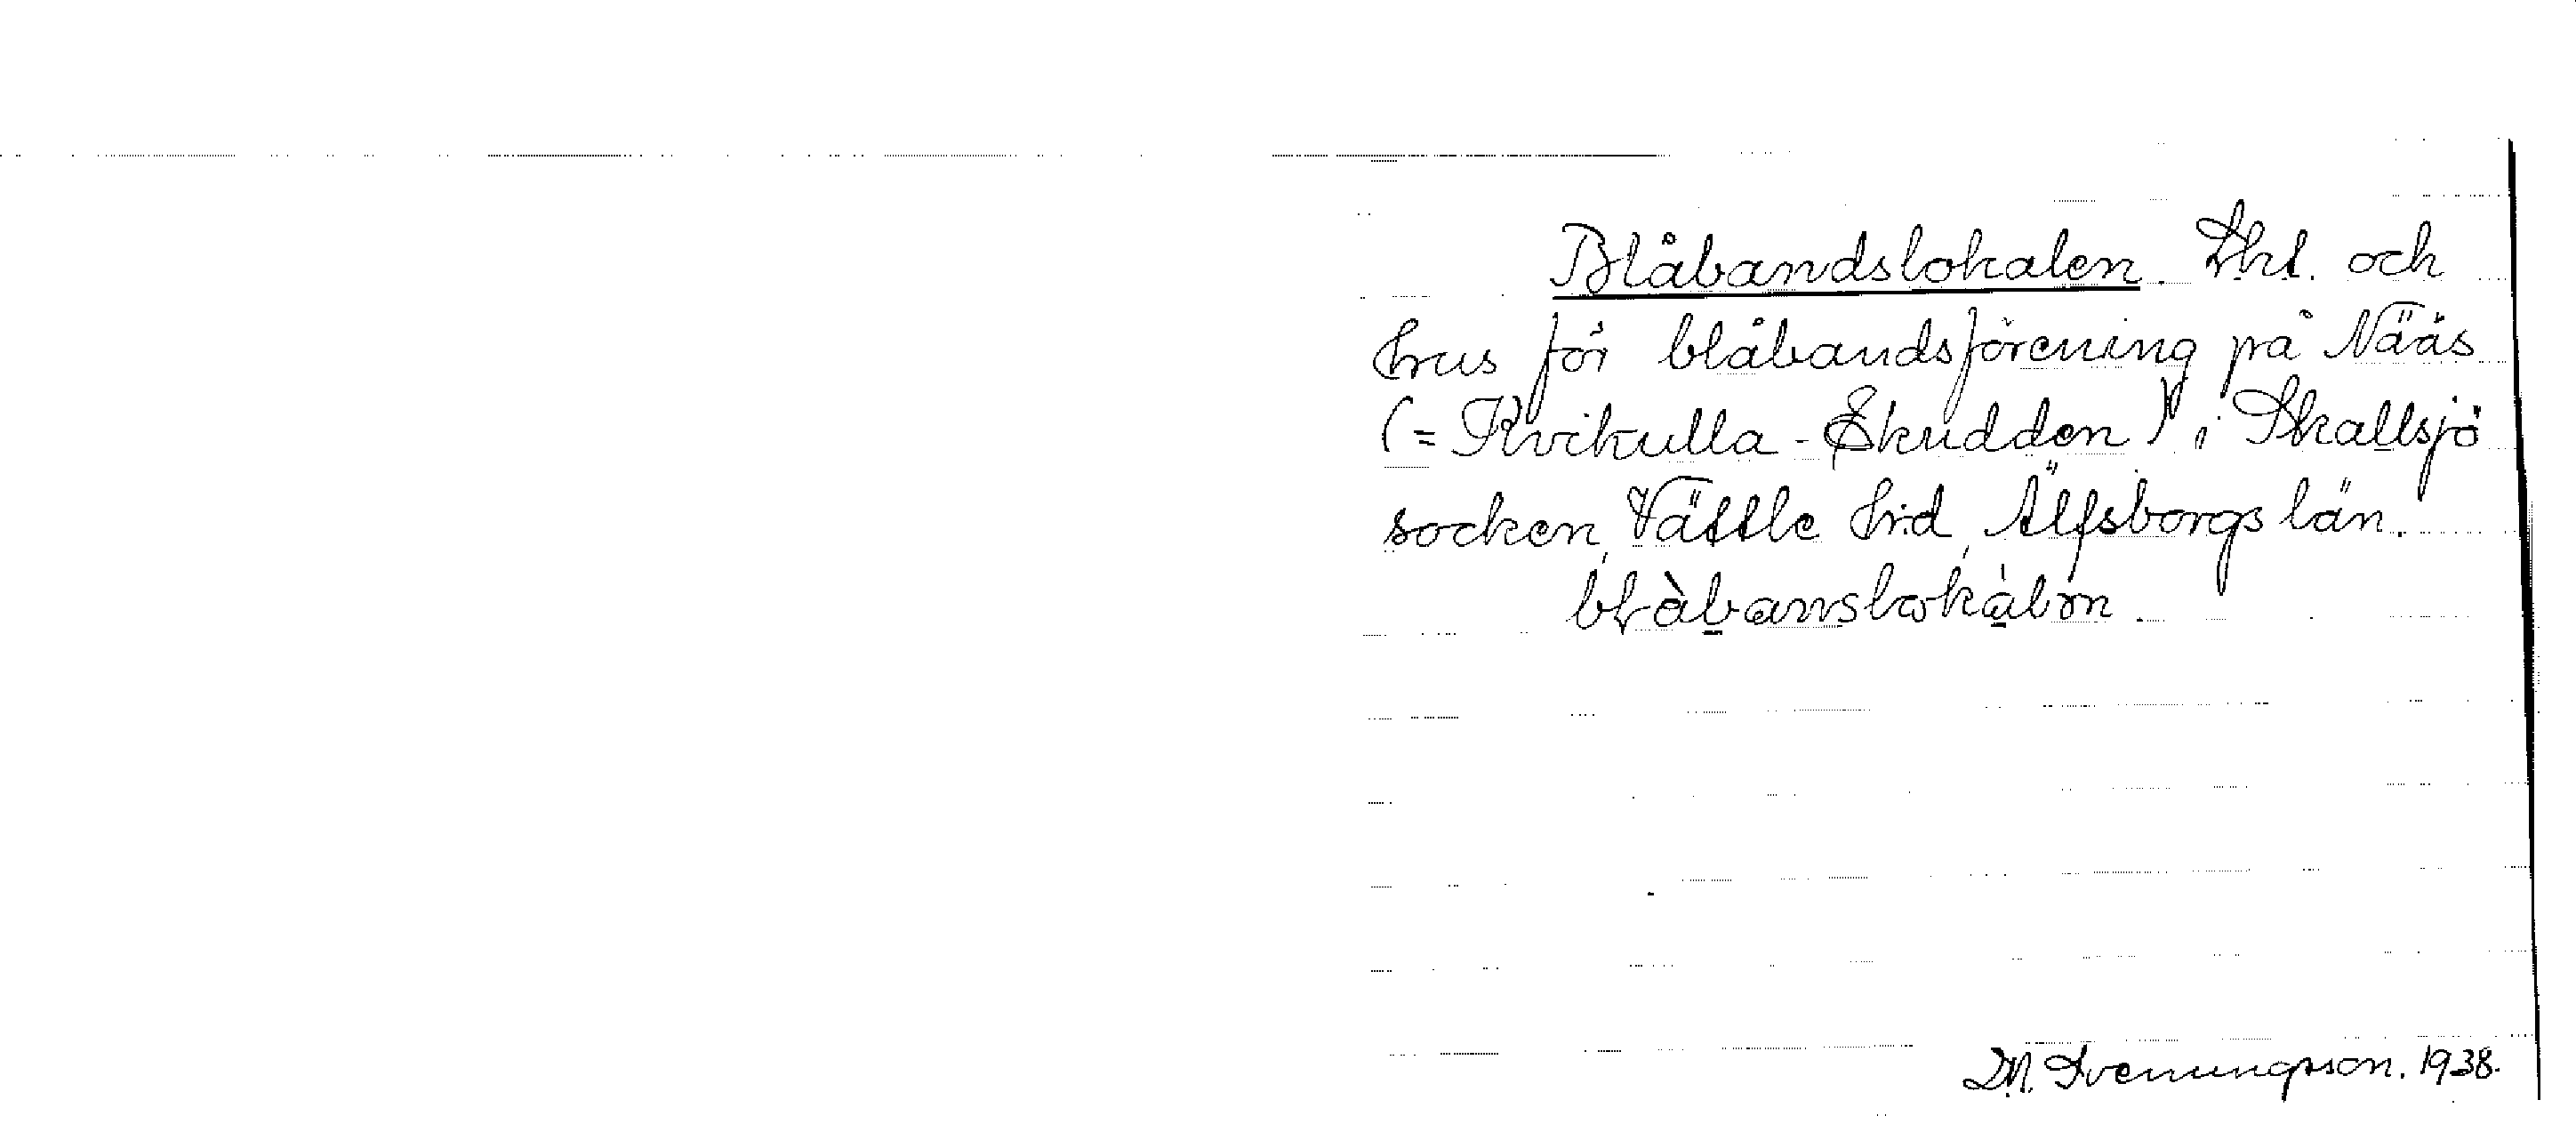 Blåbandslokalen. Lht. och
hus för blåbandsförening på Nääs
(= Kvikulla - Skudden) i Skallsjö
socken, Vättle hrd, Älfsborgs län.
blåbanslokalen.
D.N. Svenungsson. 1938.